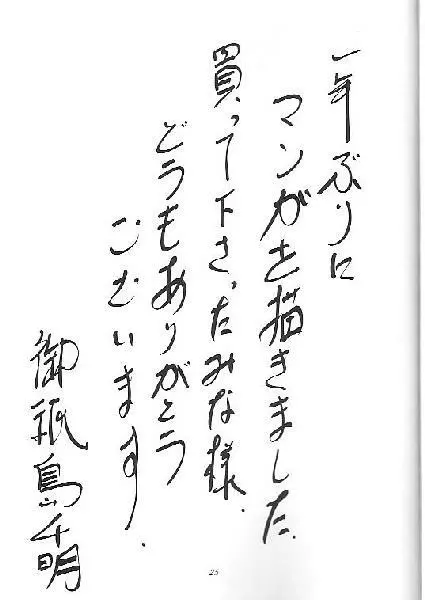 一年ぶりに
マンガを描きました
買って下さったみな様.
どうもありがとう
ごむいます.
御祇島千明
25